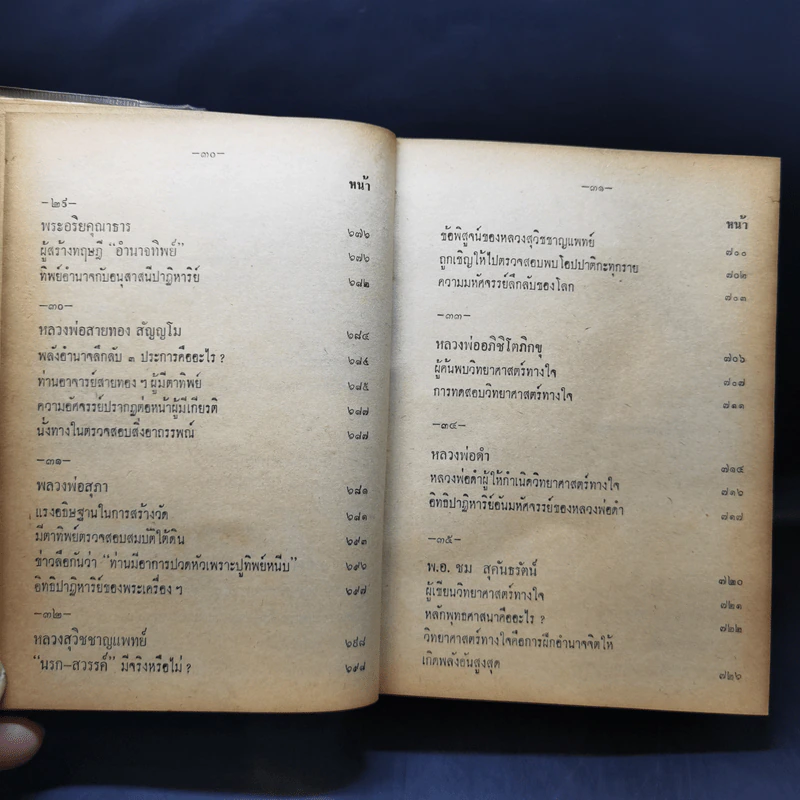 —๓๐—
หน้า
—๒๙—
พระอริยคุณาธาร ๖๗๖
ผู้สร้างทฤษฎี “อำนาจทิพย์” ๖๗๖
ทิพย์อำนาจกับอนุสาสนีปาฏิหาริย์ ๖๘๒
—๓๐—
หลวงพ่อสายทอง สัญญโม ๖๘๔
พลังอำนาจลึกลับ ๓ ประการคืออะไร ? ๖๘๕
ท่านอาจารย์สายทอง ๆ ผู้มีตาทิพย์ ๖๘๕
ความอัศจรรย์ปรากฏต่อหน้าผู้มีเกียรติ ๖๘๗
นั่งทางในตรวจสอบสิ่งอาถรรพณ์ ๖๘๗
—๓๑—
พลวงพ่อสุภา ๖๘๑
แรงอธิษฐานในการสร้างวัด ๖๙๑
มีตาทิพย์ตรวจสอบสมบัติใต้ดิน ๖๙๓
ข่าวลือกันว่า “ท่านมีอาการปวดหัวเพราะปูทิพย์หนีบ” ๖๙๖
อิทธิปาฏิหาริย์ของพระเครื่อง ๆ ๖๙๗
—๓๒—
หลวงสุวิชชาญแพทย์ ๖๙๘
“นรก-สวรรค์” มีจริงหรือไม่ ? ๖๙๘
—๓๑—
หน้า
ข้อพิสูจน์ของหลวงสุวิชชาญแพทย์ ๗๐๐
ถูกเชิญให้ไปตรวจสอบพบโอปปาติกะทุกราย ๗๐๒
ความมหัศจรรย์ลึกลับของโลก ๗๐๓
—๓๓—
หลวงพ่ออภิชิโตภิกขุ ๗๐๖
ผู้ค้นพบวิทยาศาสตร์ทางใจ ๗๐๗
การทดสอบวิทยาศาสตร์ทางใจ ๗๑๑
—๓๔—
หลวงพ่อดำ ๗๑๔
หลวงพ่อดำผู้ให้กำเนิดวิทยาศาสตร์ทางใจ ๗๑๖
อิทธิปาฏิหาริย์อันมหัศจรรย์ของหลวงพ่อดำ ๗๑๗
—๓๕—
พ.อ. ชม สุคันธรัตน์ ๗๒๐
ผู้เขียนวิทยาศาสตร์ทางใจ ๗๒๑
หลักพุทธศาสนาคืออะไร ? ๗๒๒
วิทยาศาสตร์ทางใจคือการฝึกอำนาจจิตให้
เกิดพลังอันสูงสุด ๗๒๖